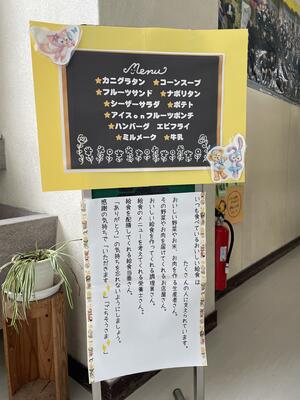 Menu
★カニグラタン ★コーンスープ
★フルーツサンド ★ナポリタン
★シーザーサラダ ★ポテト
★アイスonフルーツポンチ
★ハンバーグ エビフライ
★ミルメーク ★牛乳
いつも食べているおいしい給食は
たくさんの人に支えられています。
おいしい野菜やお米、お肉を作る生産者さん。
その野菜やお肉を届けてくれるお店屋さん。
おいしい給食を作ってくれる調理員さん。
給食のメニューを考えてくれる栄養士さん。
給食を配膳してくれる給食当番さん。
「ありがとう」の気持ちを忘れないようにしましょう。
感謝の気持ちで「いただきます」「ごちそうさま」